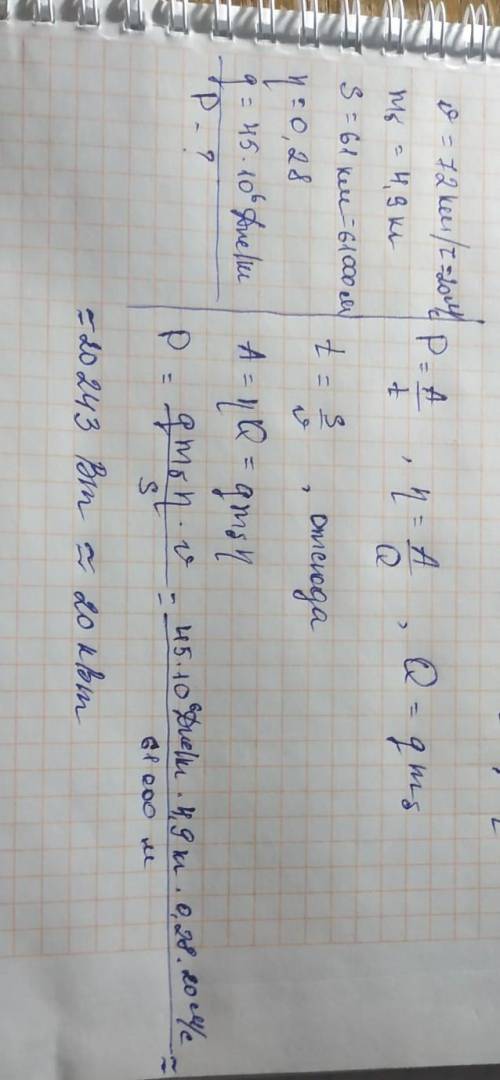 υ = 72 км/ч = 20 м/с
m₈ = 4,9 кг
S = 61 км = 61000 м
η = 0,28
q = 45·10⁶ Дж/кг
P - ?
P = A/t , η = A/Q , Q = qm₈
t = S/υ , отсюда
A = ηQ = qm₈η
P = qm₈η·υ/S = 45·10⁶ Дж/кг · 4,9 кг · 0,28 · 20 м/с / 61 000 м ≈
≈ 20243 Вт ≈ 20 кВт